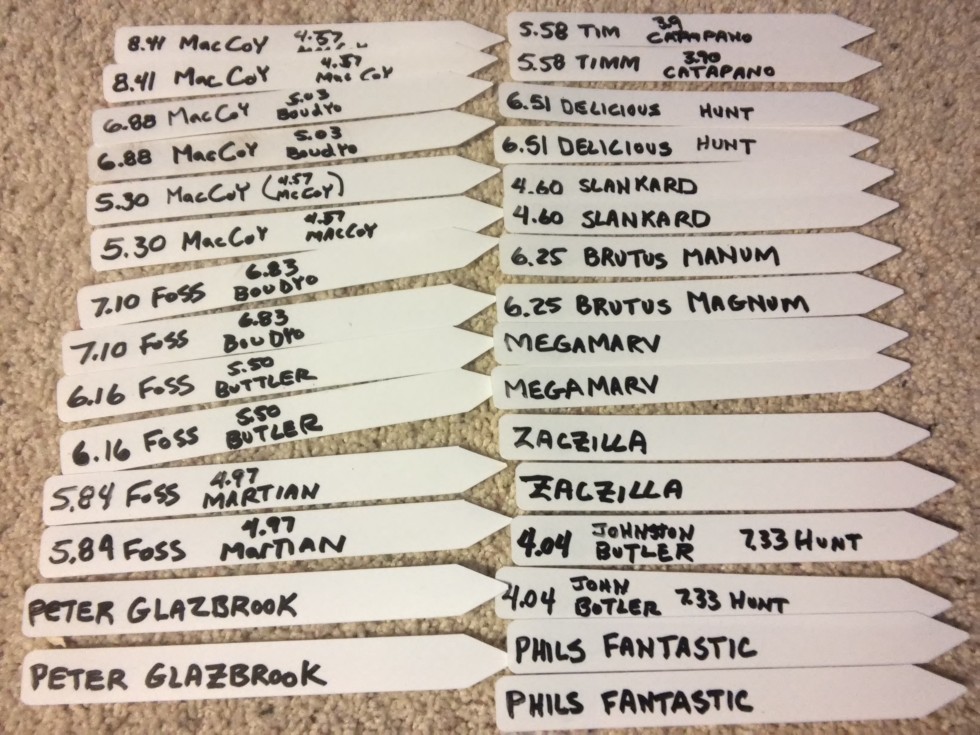 8.41 MacCoY 4.57
8.41 MacCoY 4.57 MacCoY
6.88 MacCoY 5.03 BoudYo
6.88 MacCoY 5.03 BoudYo
5.30 MacCoY (4.57 McCoY)
5.30 MacCoY 4.57 MACCOY
7.10 FOSS 6.83 BOUDYO
7.10 FOSS 6.83 BOUDYO
6.16 FOSS 5.50 BUTTLER
6.16 FOSS 5.50 BUTLER
5.84 FOSS 4.97 MARTIAN
5.84 FOSS 4.97 MARTIAN
PETER GLAZBROOK
PETER GLAZBROOK
5.58 TIM 3.9 CATAPANO
5.58 TIMM 3.90 CATAPANO
6.51 DELICIOUS HUNT
6.51 DELICIOUS HUNT
4.60 SLANKARD
4.60 SLANKARD
6.25 BRUTUS MANUM
6.25 BRUTUS MAGNUM
MEGAMARV
MEGAMARV
ZACZILLA
ZACZILLA
4.04 JOHNSTON BUTLER 7.33 HUNT
4.04 JOHN BUTLER 7.33 HUNT
PHILS FANTASTIC
PHILS FANTASTIC